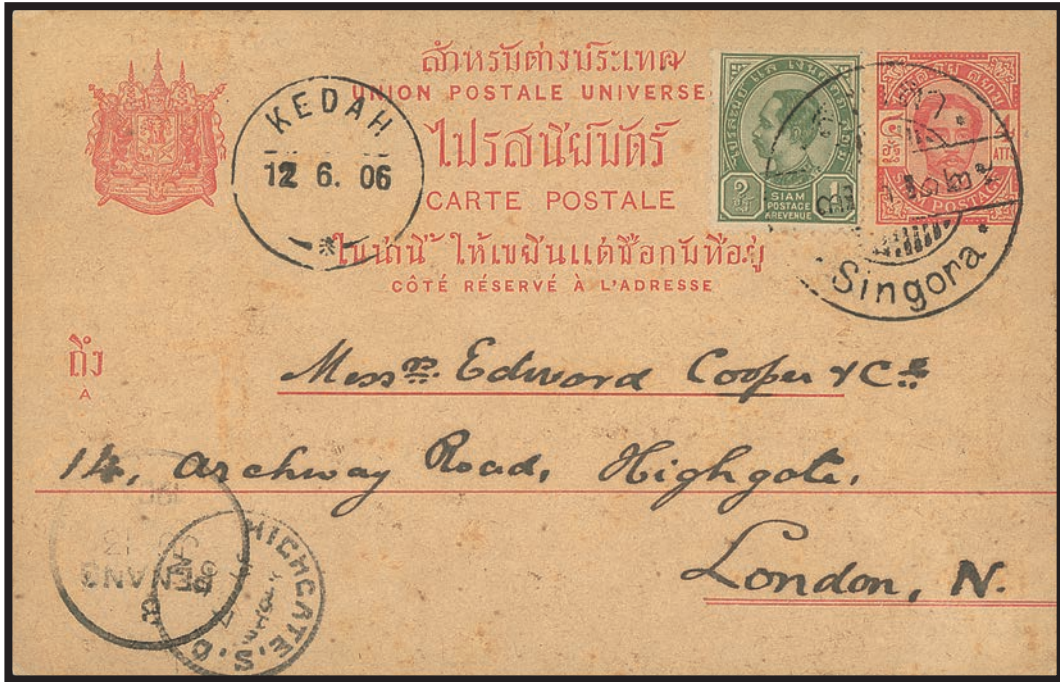 สำหรับต่างประเทศ
UNION POSTALE UNIVERSE
ไปรสนียบัตร์
CARTE POSTALE
ให้เขียนแต่ชื่อกับที่อยู่
CÔTÉ RÉSERVÉ À L'ADRESSE
KEDAH
12 6. 06
SIAM
POSTAGE
&REVENUE
1
ATT
POSTAGE
Singora
ถึง
A
Messrs. Edward Cooper & Co.
14, Archway Road, Highgate,
London, N.
PENANG
HIGHGATE. S. O